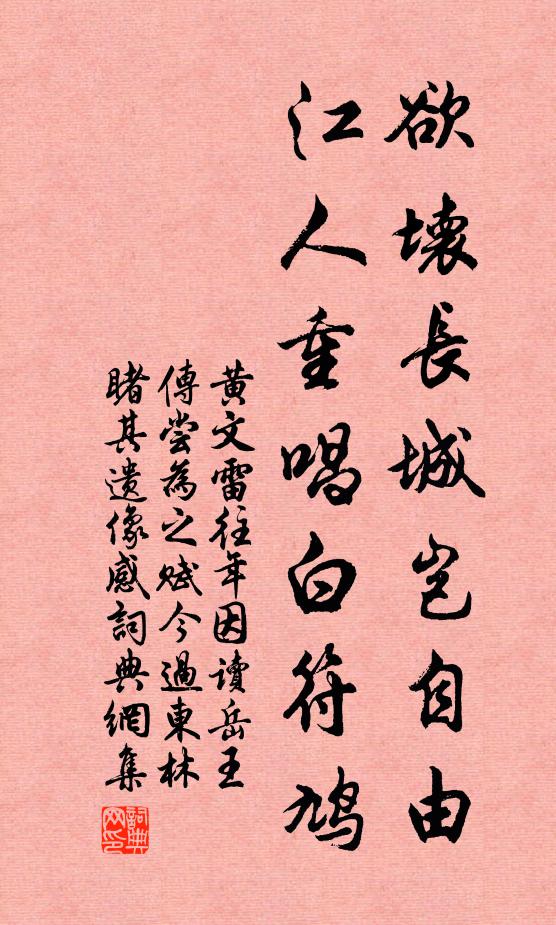 欲壞長城豈自由
江人重唱白符鳩
黄文雷往年因讀岳王
傳嘗為之賦今過東林
睹其遺像感詞典網集
詞典网印